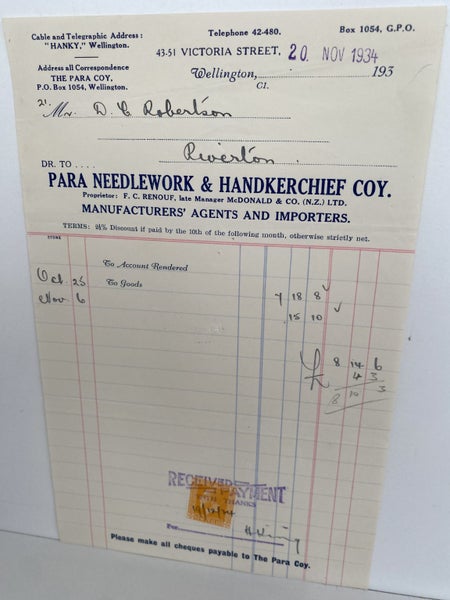 Cable and Telegraphic Address:
"HANKY," Wellington.
Telephone 42-480.
Box 1054, G.P.O.
43-51 VICTORIA STREET,
20 NOV 1934
Address all Correspondence
THE PARA COY.
P.O. Box 1054, Wellington.
Wellington, 193
C1.
21.
Mr. D. C. Robertson
Riverton.
DR. TO ....
PARA NEEDLEWORK & HANDKERCHIEF COY.
Proprietor: F. C. RENOUF, late Manager McDONALD & CO. (N.Z.) LTD.
MANUFACTURERS' AGENTS AND IMPORTERS.
TERMS: 2½% Discount if paid by the 10th of the following month, otherwise strictly net.
To Account Rendered
Oct. 25 To Goods 7 18 8
Nov 6 15 10
8 14 6
4 3
8 10 3
RECEIVED PAYMENT
WITH THANKS
Per
Please make all cheques payable to The Para Coy.